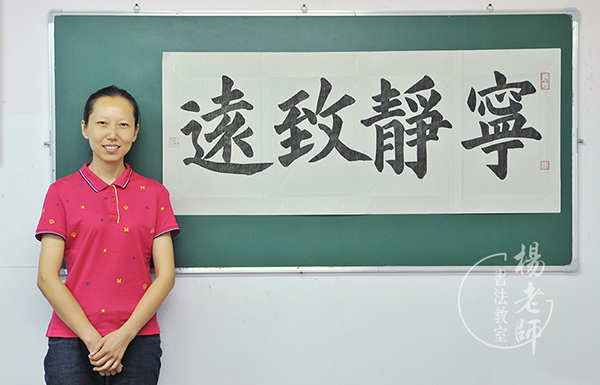 寧靜致遠
楊老師
書法教室